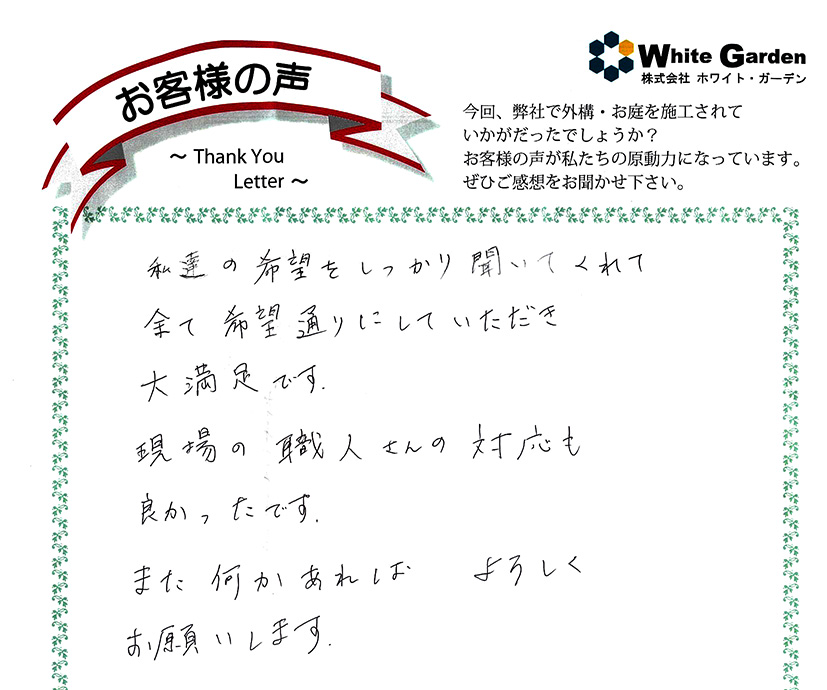 お客様の声
～ Thank You
Letter ～
White Garden
株式会社 ホワイト・ガーデン
今回、弊社で外構・お庭を施工されて
いかがだったでしょうか？
お客様の声が私たちの原動力になっています。
ぜひご感想をお聞かせ下さい。
私達の希望をしっかり聞いてくれて
全て希望通りにしていただき
大満足です.
現場の職人さんの対応も
良かったです.
また何かあれば よろしく
お願いします.